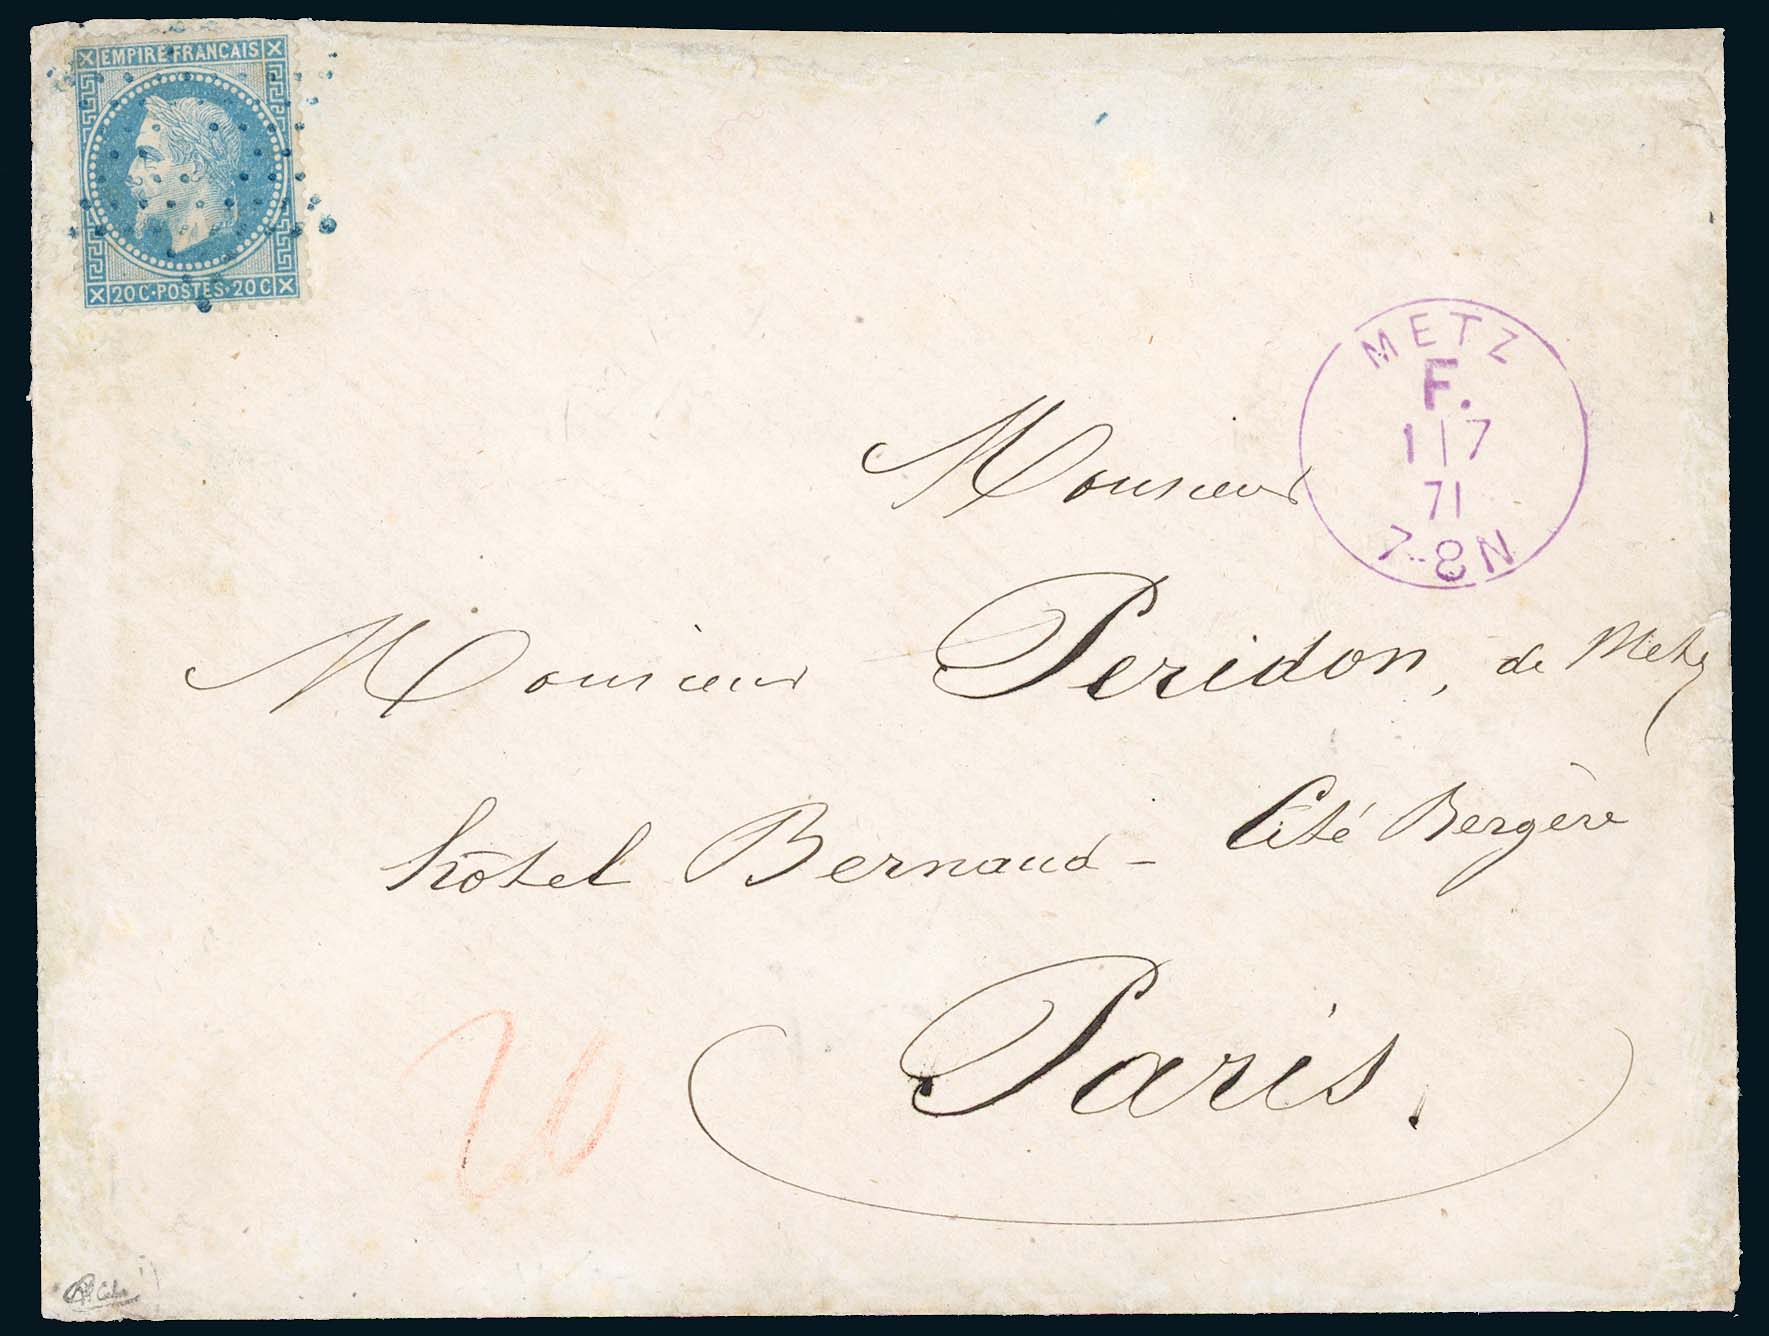 EMPIRE FRANCAIS
20 C · POSTES · 20 C
METZ
F.
1 | 7
71
7-8N
Monsieur
Monsieur Peridon, de Metz
hôtel Bernaud - Cité Bergère
20
Paris.